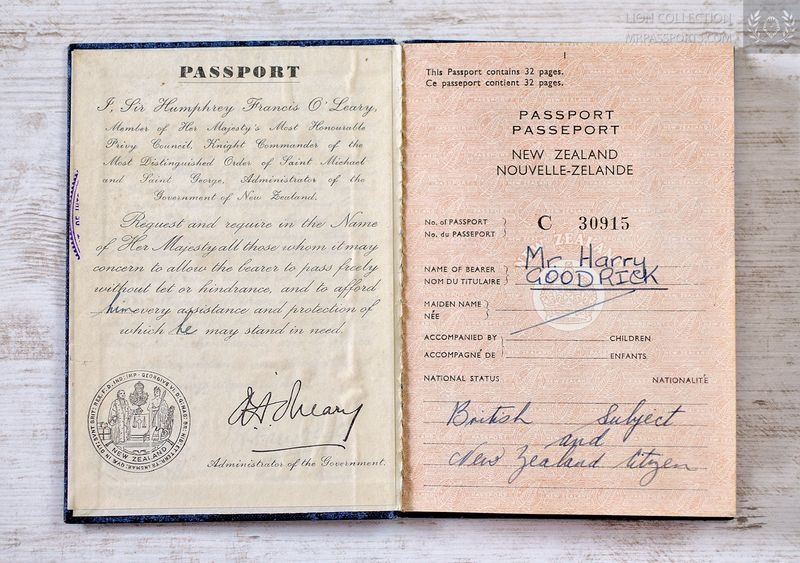 LION COLLECTION
MRPASSPORTS.COM
PASSPORT
I, Sir Humphrey Francis O'Leary,
Member of Her Majesty's Most Honourable
Privy Council, Knight Commander of the
Most Distinguished Order of Saint Michael
and Saint George, Administrator of the
Government of New Zealand.
Request and require in the Name
of Her Majesty all those whom it may
concern to allow the bearer to pass freely
without let or hindrance, and to afford
him every assistance and protection of
which he may stand in need.
NEW ZEALAND
H. F. O'Leary
Administrator of the Government.
This Passport contains 32 pages.
Ce passeport contient 32 pages.
PASSPORT
PASSEPORT
NEW ZEALAND
NOUVELLE-ZELANDE
No. of PASSPORT
No. du PASSEPORT
C 30915
NAME OF BEARER
NOM DU TITULAIRE
Mr. Harry
GOODRICK
MAIDEN NAME
NÉE
ACCOMPANIED BY CHILDREN
ACCOMPAGNÉ DE ENFANTS
NATIONAL STATUS NATIONALITÉ
British Subject
and
New Zealand Citizen